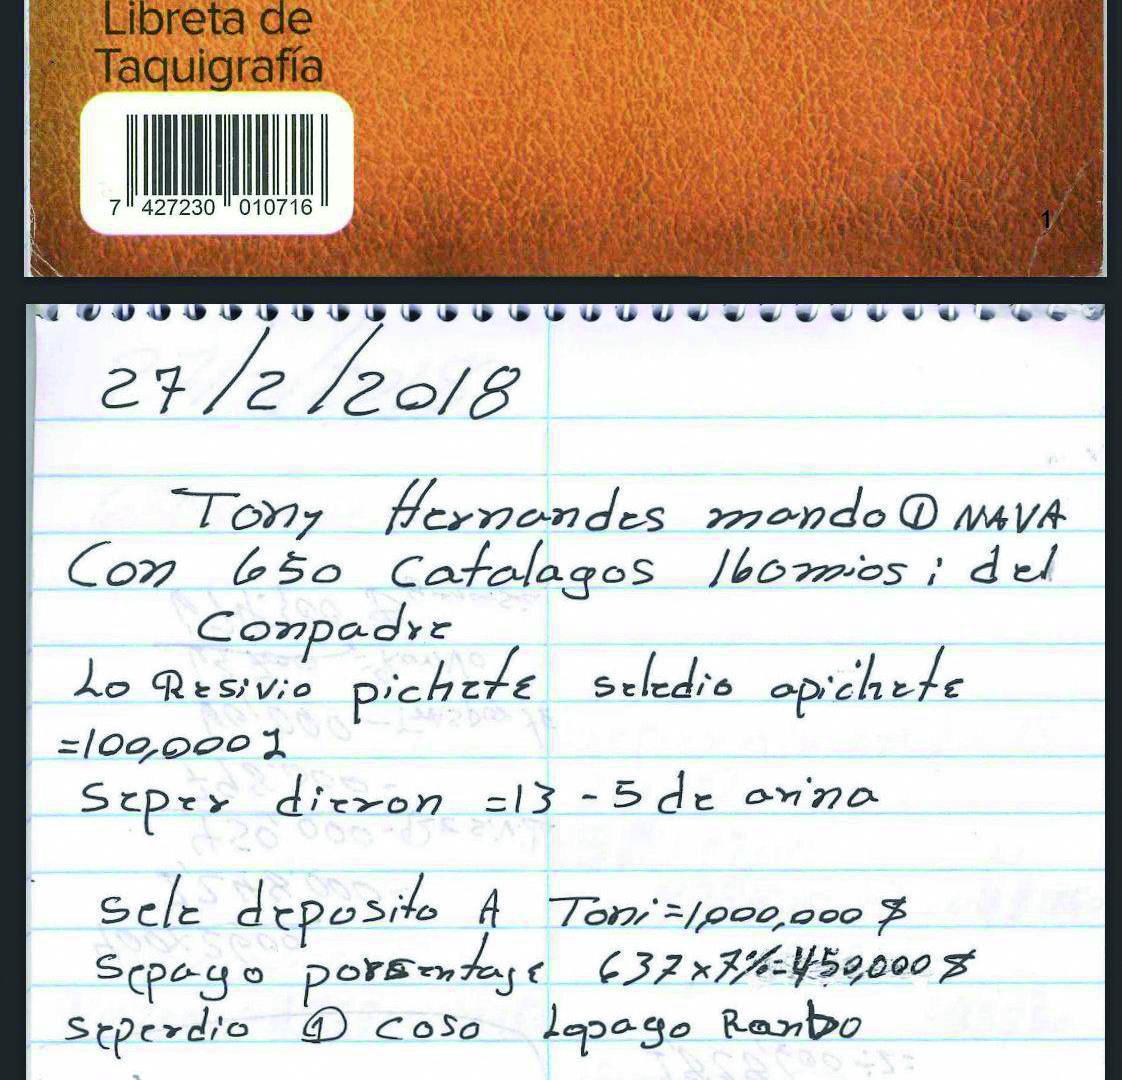 Libreta de
Taquigrafía
7 427230 010716
1
27/2/2018
Tony Hernandes mando ① NAVA
Con 650 catalagos 160 mios; del
Conpadre
Lo Resivio pichete seledio apichete
=100,000 L
Seper dieron =13 - 5 de arina
Sele deposito A Toni=1,000,000 $
Sepago porsentage 637x7%=450,000 $
Seperdio ① coso Lopago Ranbo